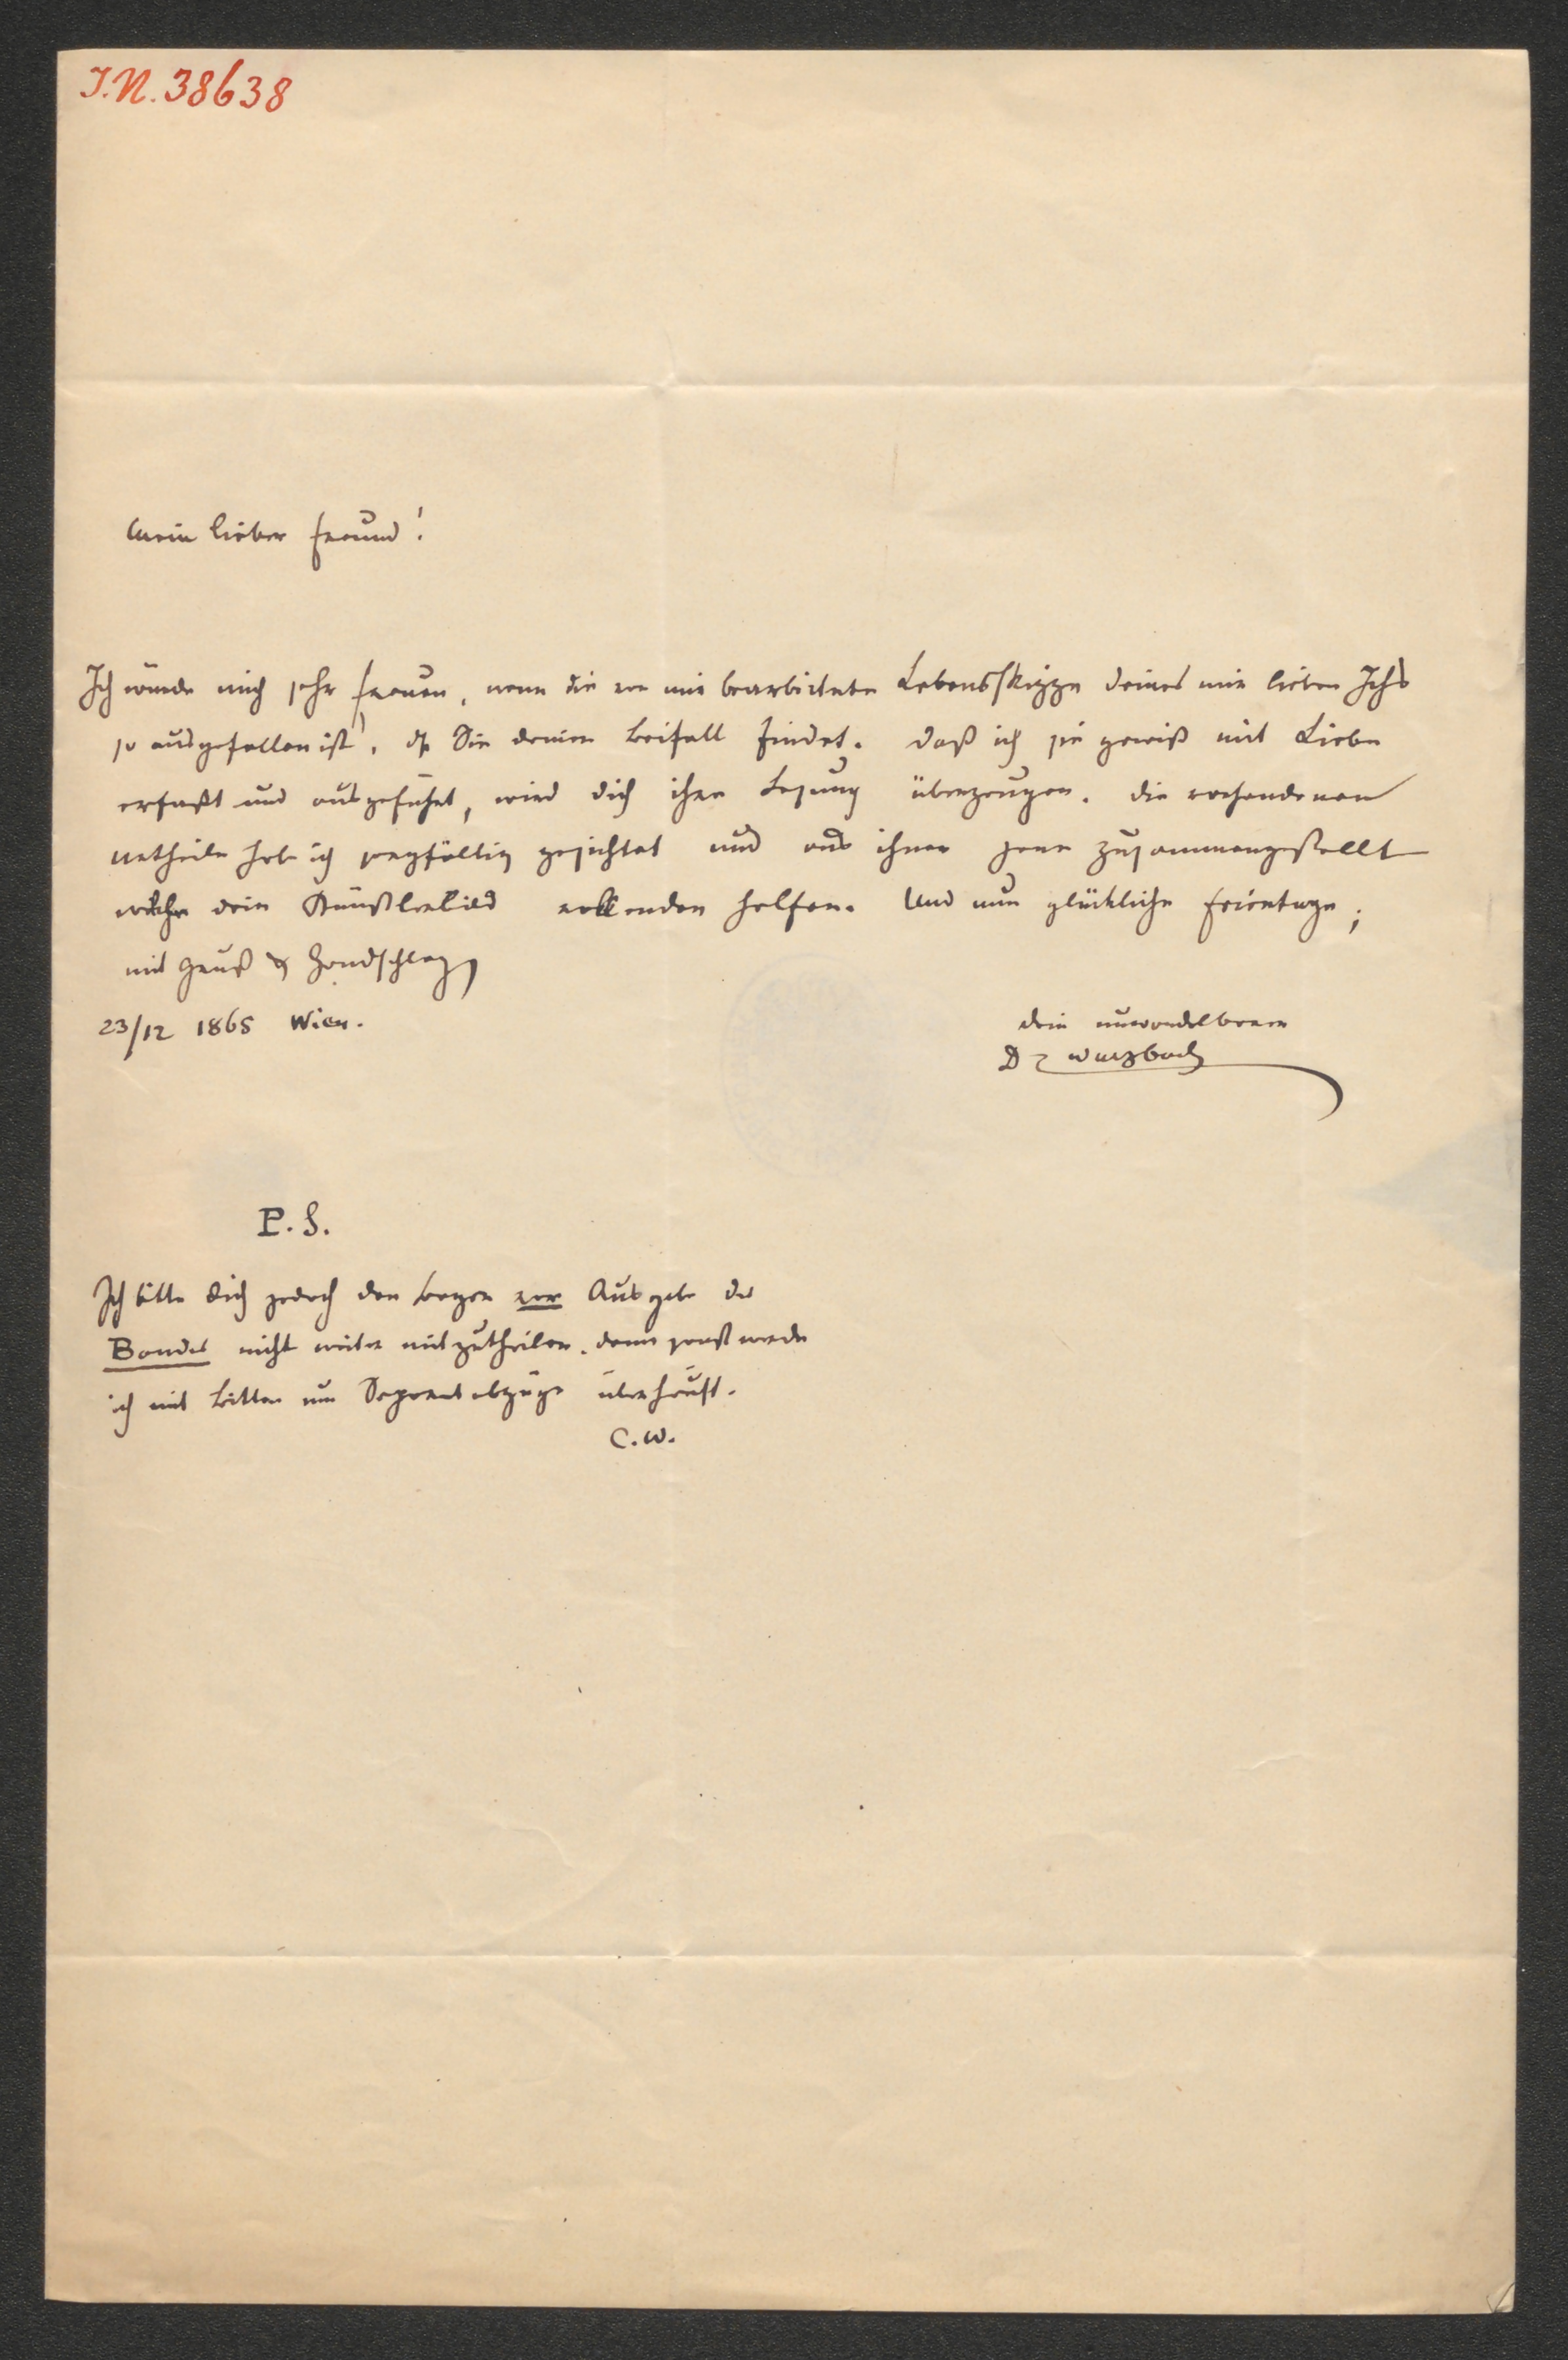 I.N. 38638
Mein lieber Freund!
Ich würde mich sehr freuen, wenn die von mir bearbeitete Lebensskizze deines mir lieben Ichs
so ausgefallen ist, dß Sie deinen Beifall findet. Daß ich sie gewiß mit Liebe
erfaßt und ausgeführt, wird dich ihre Lesung überzeugen. Die vorhandenen
Urtheile habe ich sorgfältig gesichtet und aus ihnen jene zusammengestellt
welche dein Künstlerbild vollenden helfen. Und nun glückliche Feiertage,
mit Gruß & Handschlag
23/12 1865 Wien.
dein unwandelbarer
Dr Wurzbach
P.S.
Ich bitte dich jedoch den Bogen vor Ausgabe des
Bandes nicht weiter mitzutheilen, denn sonst werde
ich mit Bitten um Separatabzüge überhäuft.
C.W.